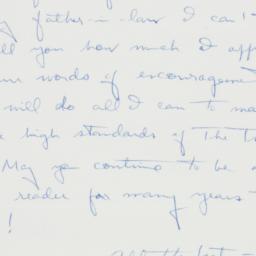 father-in-law I can't
ll you how much I app
words of encouragemen
will do all I can to ma
high standards of The T
May you continue to be a
reader for many years
!
All the best